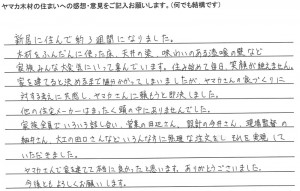 ヤマカ木材の住まいへの感想・意見をご記入お願いします。(何でも結構です)
新居に住んで約3週間になりました。
木材をふんだんに使った床、天井の梁、味わいのある漆喰の壁など
家族みんな大変気に入って喜んでいます。住み始めて毎日、笑顔が絶えません。
家を建てると決めるまで随分かかってしまいましたが、ヤマカさんの家づくりに
対する考えに共感し、ヤマカさんに頼もうと即決しました。
他の住宅メーカーはまったく頭の中にありませんでした。
家族全員でいろいろ話し合い、営業の日比さん、設計の今井さん、現場監督の
細井さん、大工の田口さんなどいろんな方に無理な注文をし それを実現して
いただきました。
ヤマカさんで家を建てて本当に良かったと思います。ありがとうございました。
今後ともよろしくお願いします。